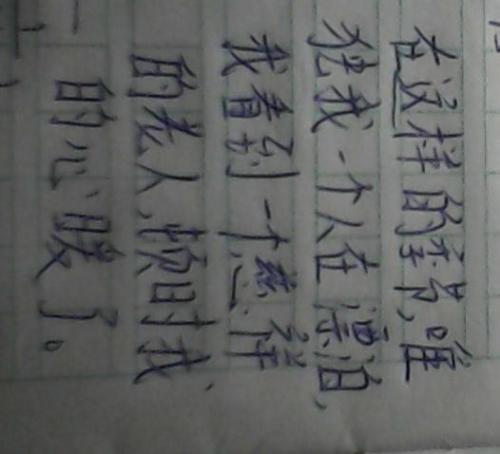 在这样的季节，唯
独我一个人在漂泊，
我看到一个慈祥
的老人，顿时我
的心暖了。